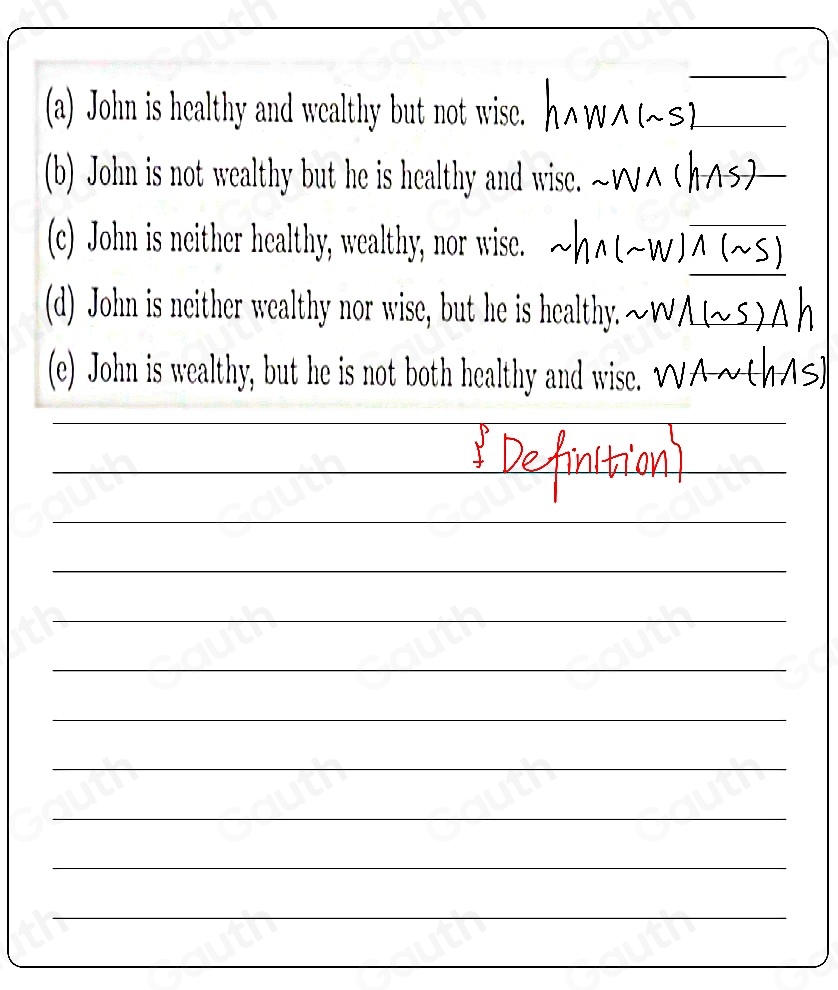 (a) John is healthy and wealthy but not wise. h∧w∧(~s)
(b) John is not wealthy but he is healthy and wise. ~w∧(h∧s)
(c) John is neither healthy, wealthy, nor wise. ~h∧(~w)∧(~s)
(d) John is neither wealthy nor wise, but he is healthy. ~w∧(~s)∧h
(e) John is wealthy, but he is not both healthy and wise. w∧~(h∧s)
{Definition}